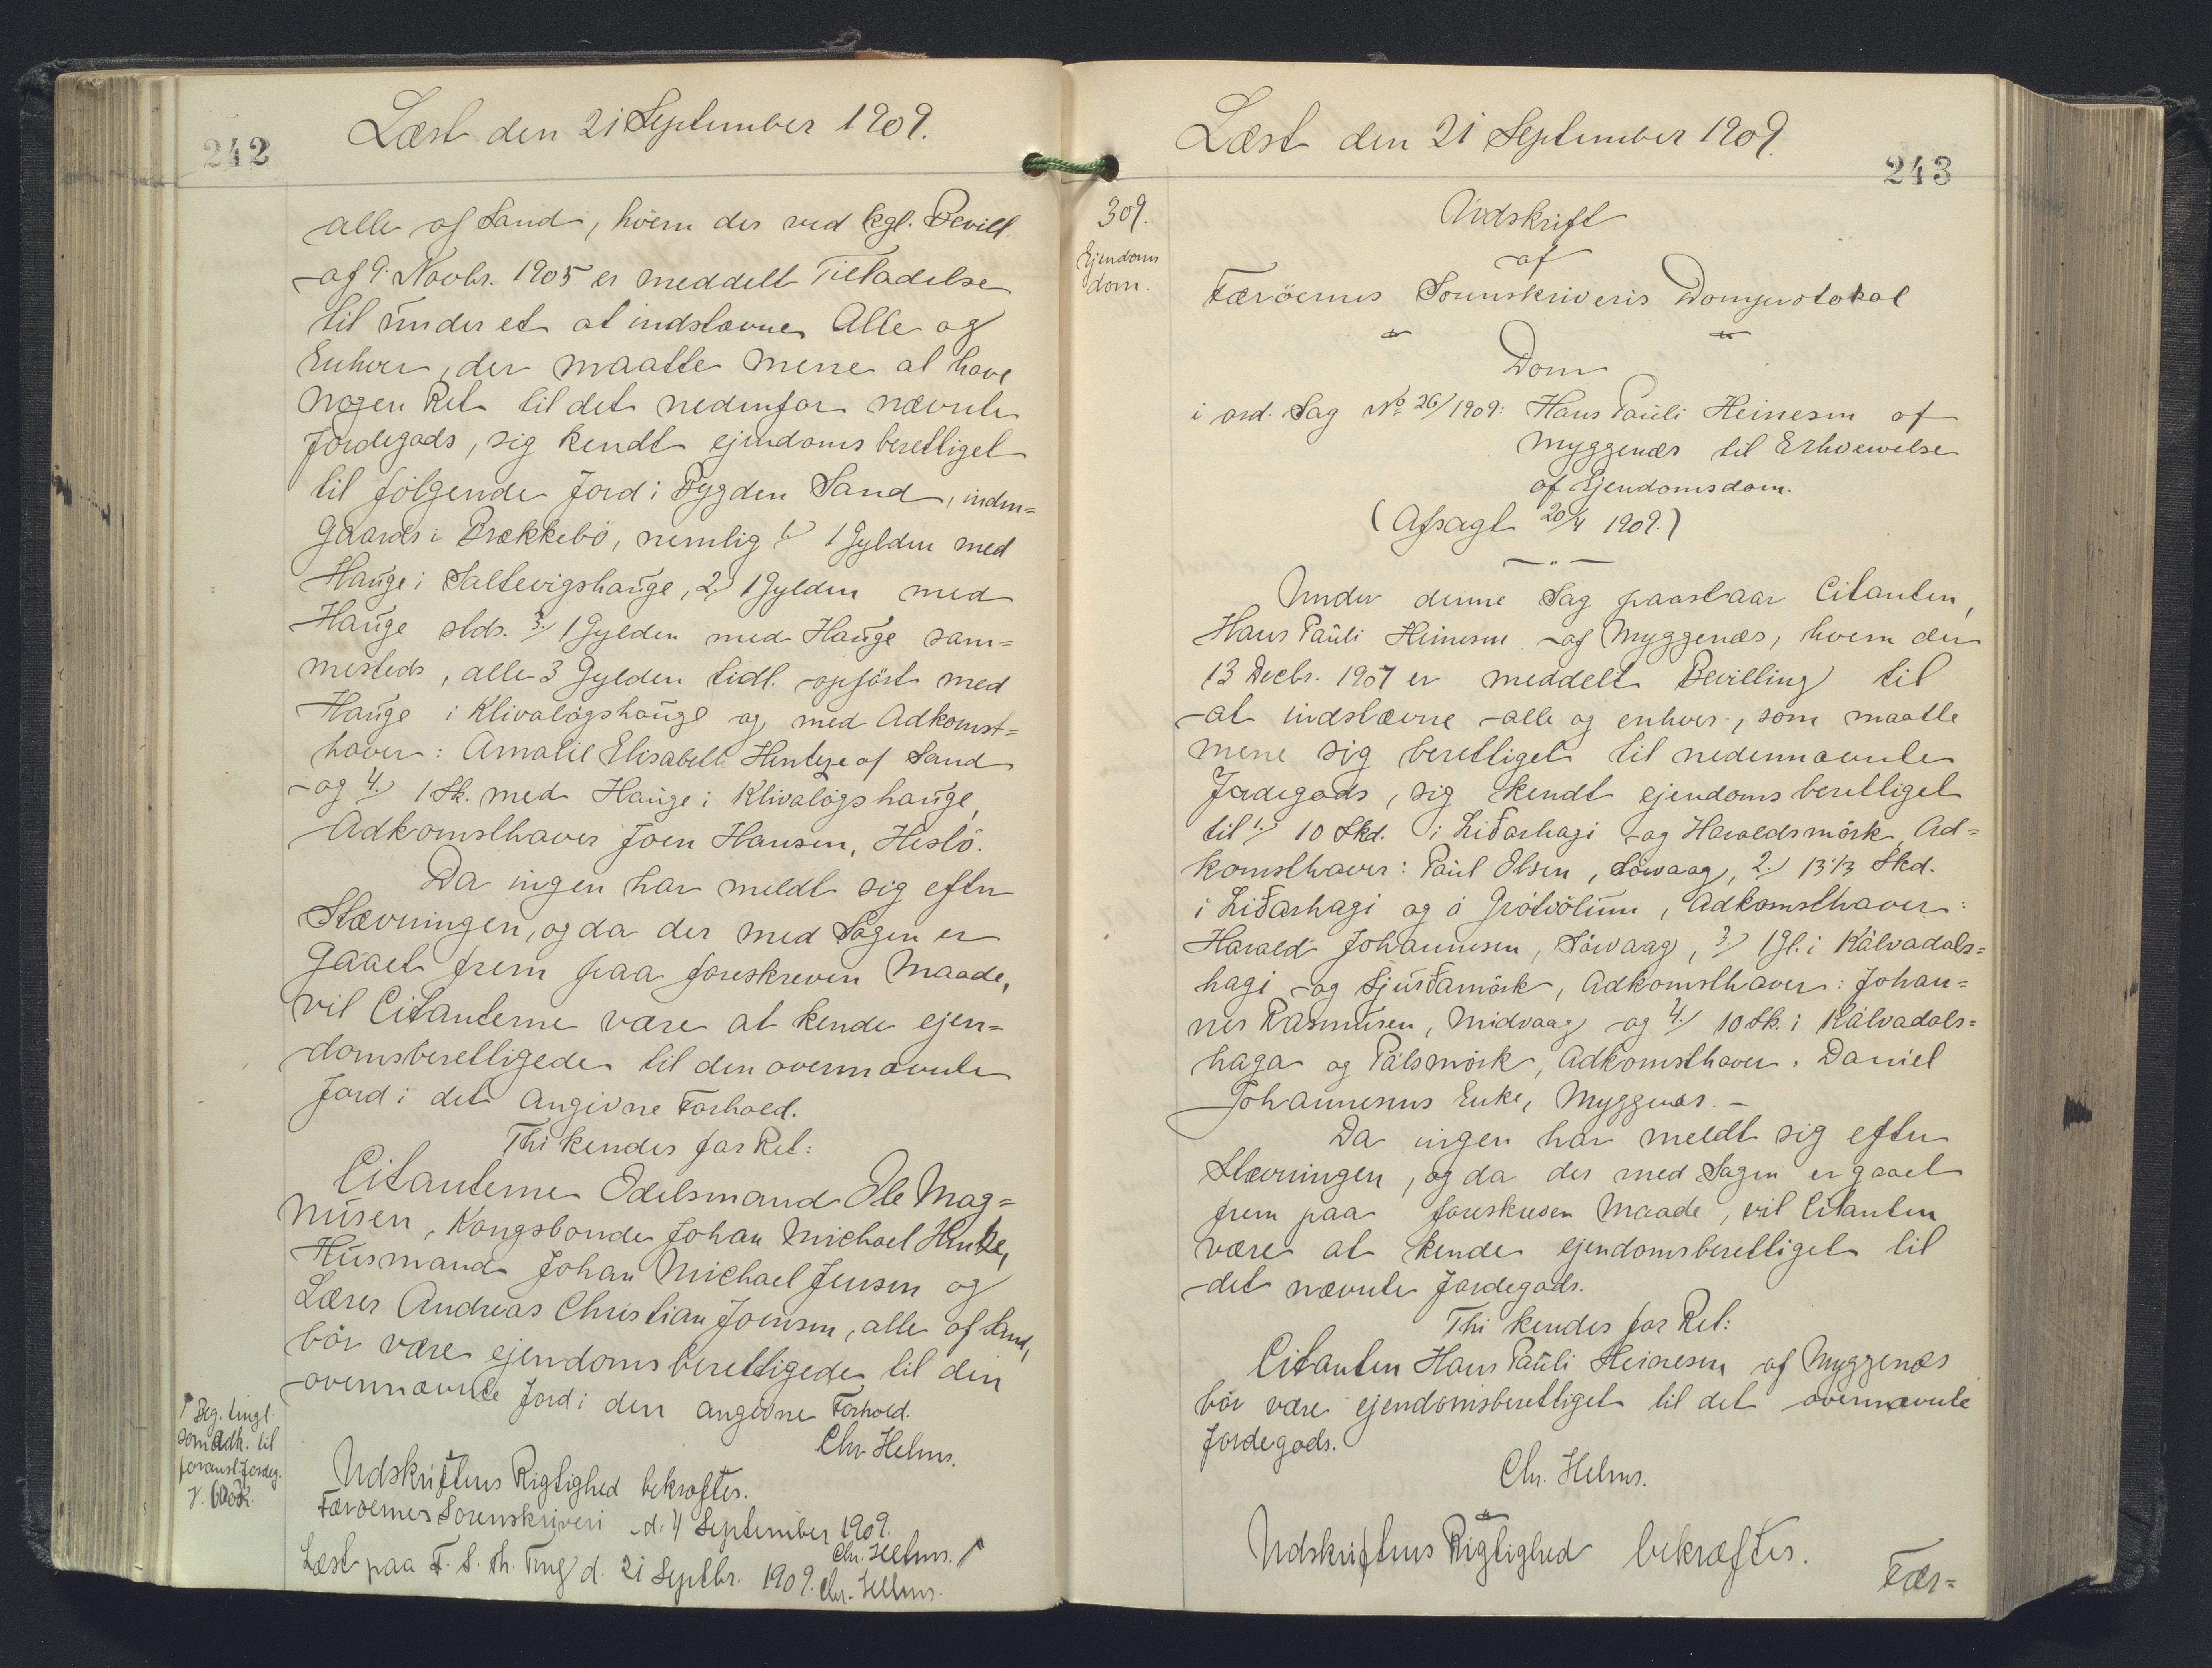 242
Læst den 21 September 1909.
alle af Sand, hvem der ved kgl. Bevill.
af 9. Novbr. 1905 er meddelt Tilladelse
til under et at indstævne Alle og
Enhver, der maatte mene at have
nogen Ret til det nedenfor nævnte
Jordegods, sig kendt ejendomsberettiget
til følgende Jord i Bygden Sand, inden=
gaards i Brekkebö, nemlig 1) 1 Gylden med
Hauge i Saltevigshauge, 2) 1 Gylden med
Hauge stds. 3) 1 Gylden med Hauge sam=
mesteds, alle 3 Gylden tidl. opført med
Hauge i Klivalögshauge og med Adkomst=
haver: Amalie Elisabeth Hentze af Sand
og 4) 1 Sk. med Hauge i Klivalögshauge,
Adkomsthaver Joen Hansen, Hestö.
Da ingen har meldt sig efter
Stævningen, og da der med Sagen er
gaaet frem paa foreskreven Maade,
vil Citanterne være at kende ejen=
domsberettigede til den ovennævnte
Jord i det angivne Forhold.
Thi kendes for Ret:
Citanterne Odelsmand Ole Mag=
nusen, Kongsbonde Johan Michael Hentze,
Husmand Johan Michael Jensen og
Lærer Andreas Christian Joensen, alle af Sand,
bör være ejendomsberettigede til den
ovennævnte Jord i den angivne Forhold.
Chr. Helms.
Udskriftens Rigtighed bekræftes.
Færöernes Sorenskriveri d. 4 September 1909.
Chr. Helms.
Læst paa F. S. Th. Ting d. 21 Septbr. 1909. Chr. Helms.
Beg. tingl.
som Adk. til
foranst. Jordeg.
243
Læst den 21 September 1909.
309.
Ejendoms
dom.
Udskrift
af
Færöernes Sorenskriveris Domprotokol
Dom
i ord. Sag No 26/1909: Hans Pauli Heinesen af
Myggenæs til Erhvervelse
af Ejendomsdom.
(Afsagt 20/4 1909.)
Under denne Sag paastaar Citanten,
Hans Pauli Heinesen af Myggenæs, hvem der
13 Decbr. 1907 er meddelt Bevilling til
at indstævne alle og enhver, som maatte
mene sig berettiget til nedennævnte
Jordegods, sig kendt ejendomsberettiget
til 1) 10 Skd. i Liðarhagi og Haraldsmörk, Ad=
komsthaver: Paul Olsen, Sörvaag, 2) 13 1/3 Skd.
i Liðarhagi og á Grótvölum, Adkomsthaver:
Harald Johannesen, Sörvaag, 3) 1 Gl. i Kálvadals=
hagi og Sjúrðamörk, Adkomsthaver: Johan=
nes Rasmusen, Midvaag og 4) 10 Sk. i Kálvadals=
haga og Pálsmörk, Adkomsthaver: Daniel
Johannesens Enke, Myggenæs. –
Da ingen har meldt sig efter
Stævningen, og da der med Sagen er gaaet
frem paa foreskreven Maade, vil Citanten
være at kende ejendomsberettiget til
det nævnte Jordegods.
Thi kendes for Ret:
Citanten Hans Pauli Heinesen af Myggenæs
bör være ejendomsberettiget til det ovennævnte
Jordegods.
Chr. Helms.
Udskriftens Rigtighed bekræftes.
Fær=